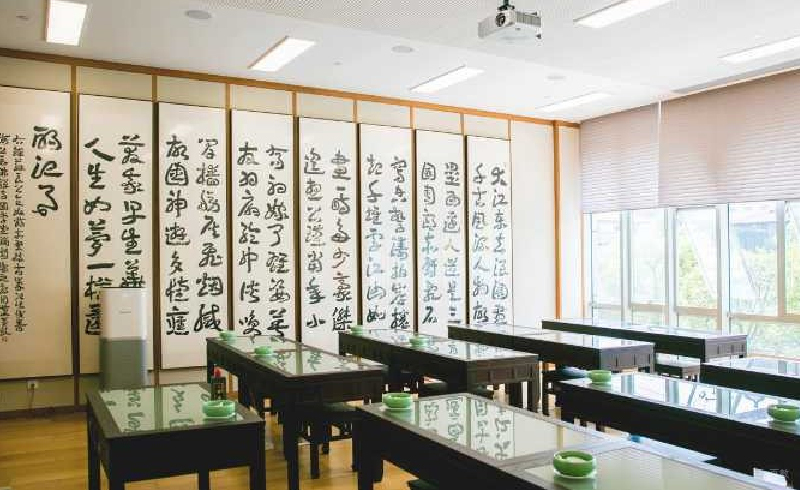 大江東去浪淘盡
千古風流人物故
壘西邊人道是三
國周郎赤壁亂石
穿空驚濤拍岸捲
起千堆雪江山如
畫一時多少豪傑
遙想公瑾當年小
喬初嫁了雄姿英
發羽扇綸巾談笑
間檣櫓灰飛煙滅
故國神遊多情應
笑我早生華
人生如夢一樽還
酹江月